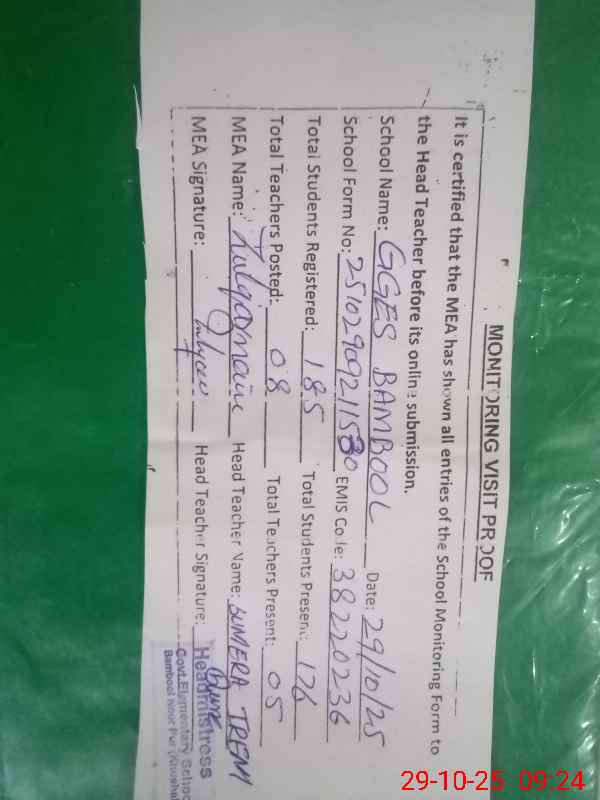 MONITORING VISIT PROOF
It is certified that the MEA has shown all entries of the School Monitoring Form to
the Head Teacher before its online submission.
School Name: GGES BAMBOOL Date: 29/10/25
School Form No: EMIS Code: 38220236
Total Students Registered: 185 Total Students Present: 176
Total Teachers Posted: 08 Total Teachers Present: 05
MEA Name: Zulqarnain Head Teacher Name: SUMERA
MEA Signature: Head Teacher Signature:
Headmistress
Govt. Elementary School
Bambool Noor Pur
29-10-25 09:24